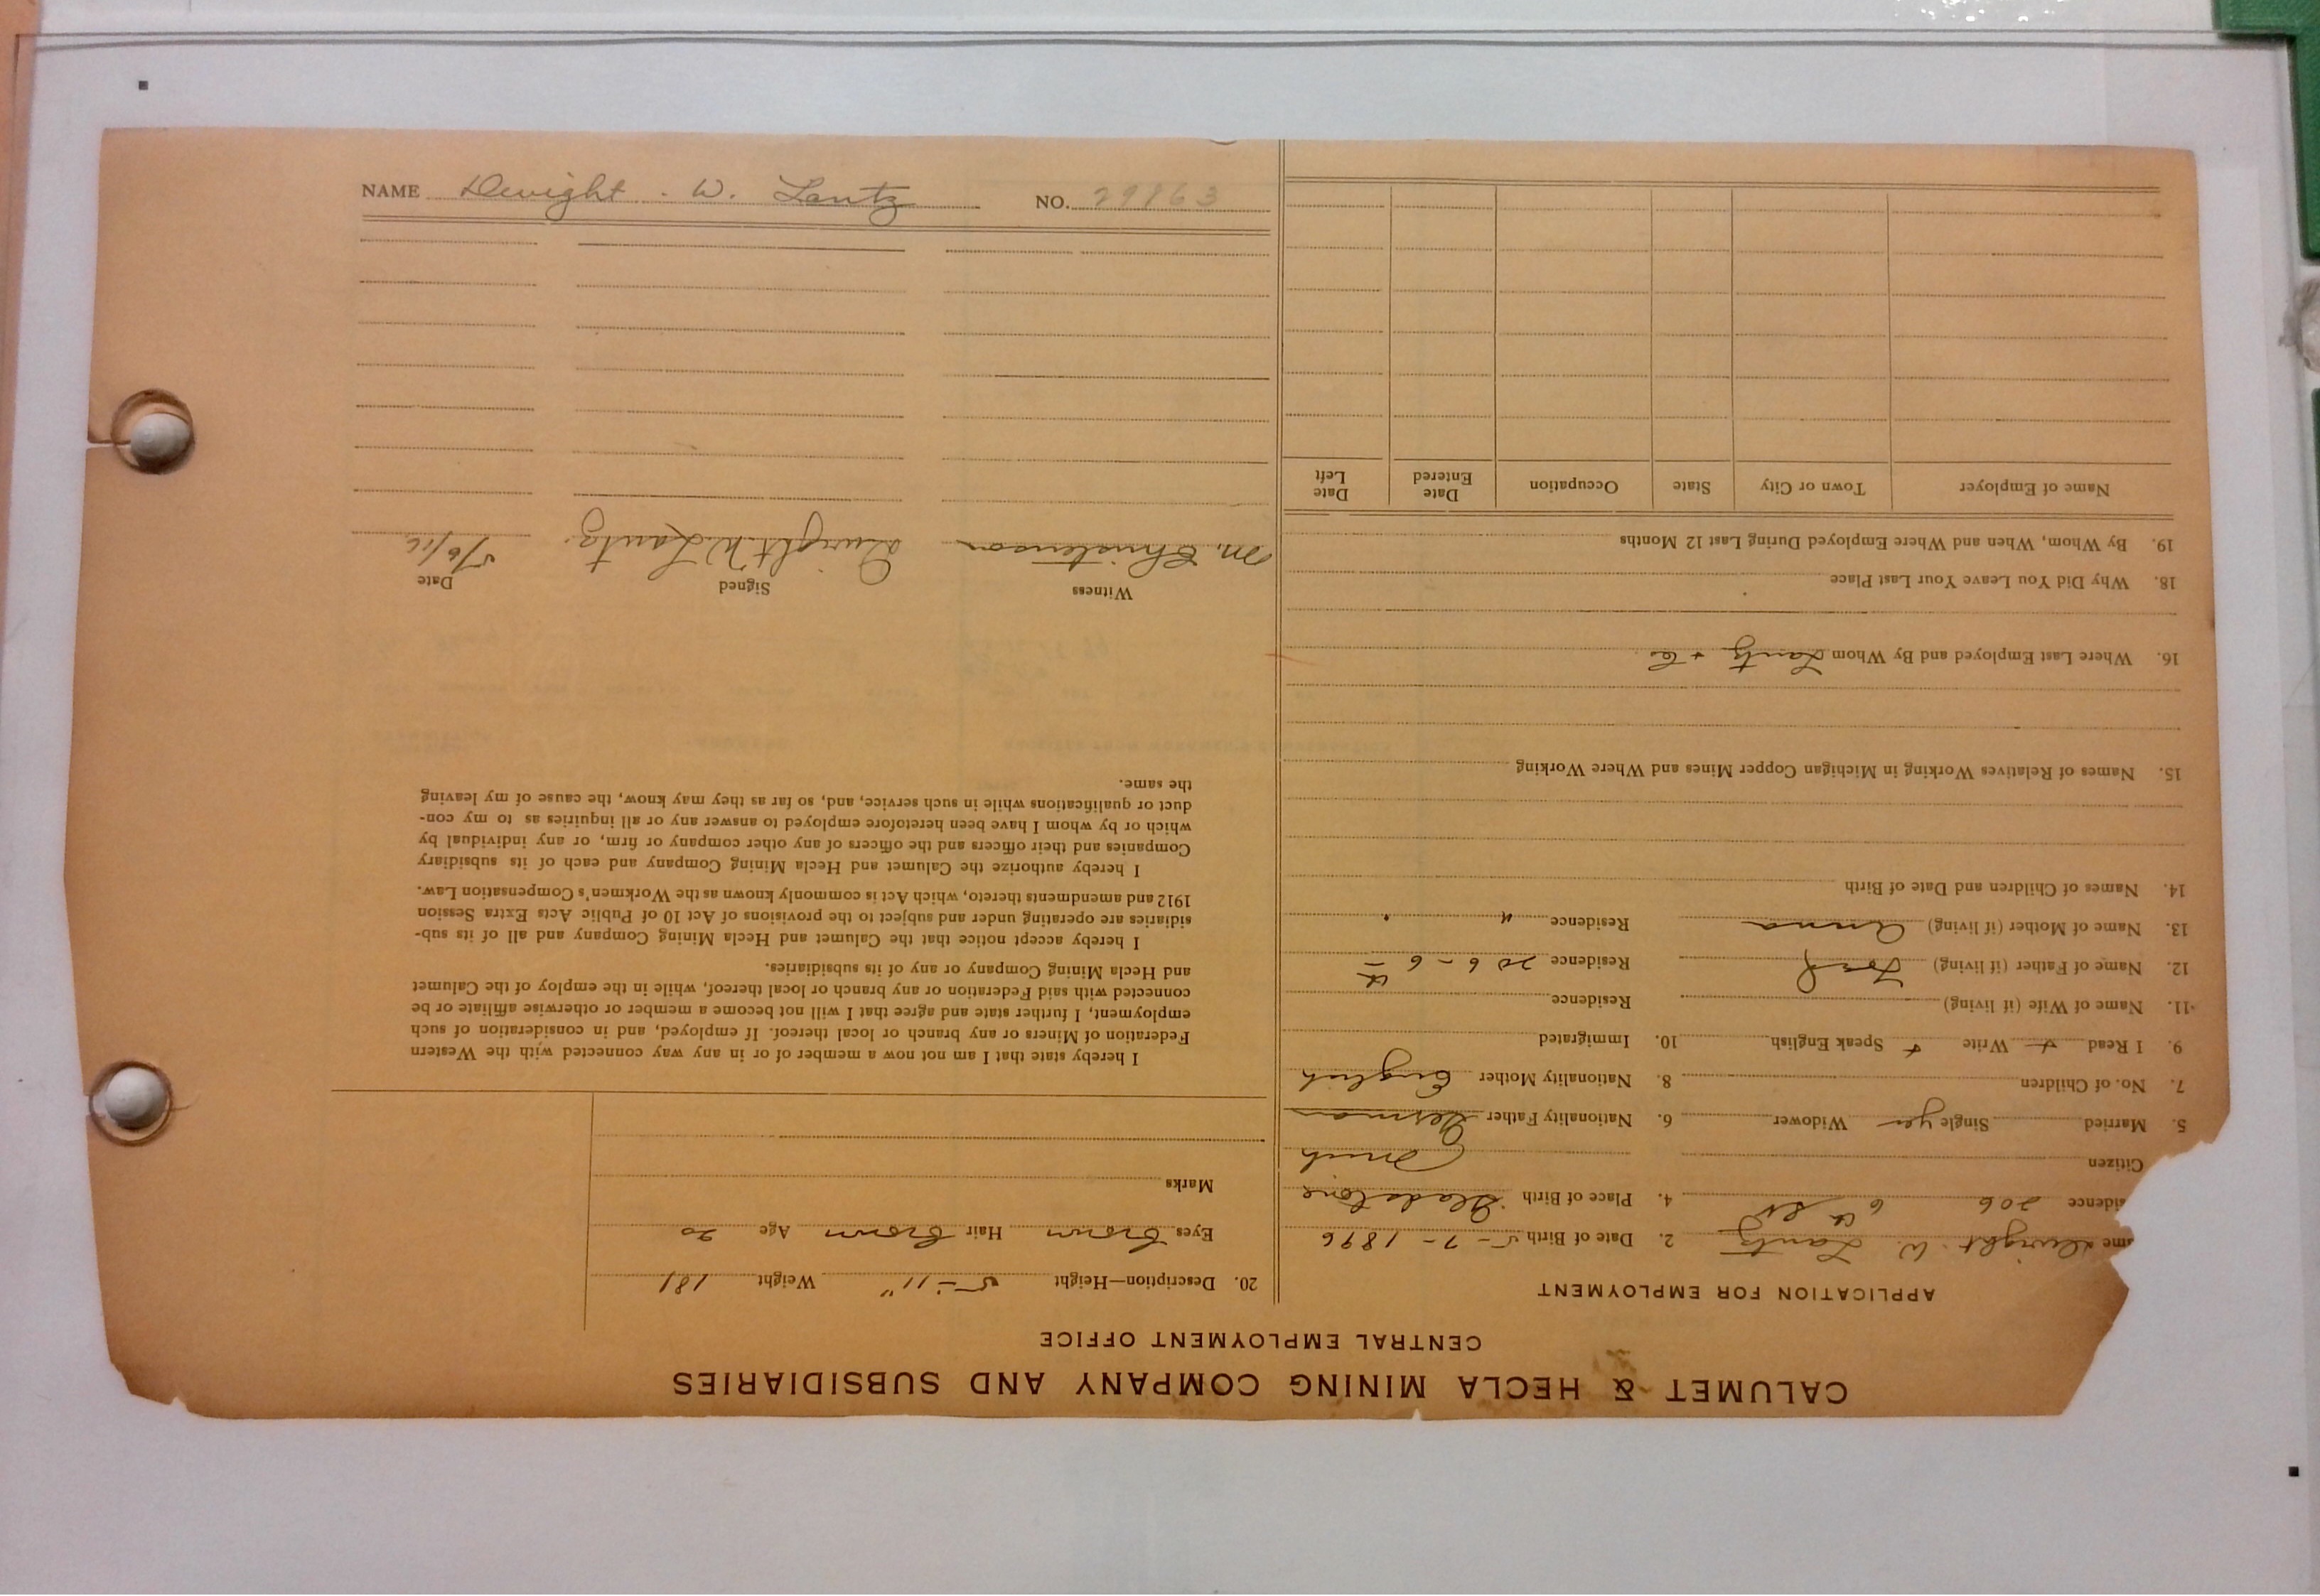 NAME Dwight W. Lantz NO. 29863
CALUMET & HECLA MINING COMPANY AND SUBSIDIARIES
CENTRAL EMPLOYMENT OFFICE
APPLICATION FOR EMPLOYMENT
ame Dwight W. Lantz
2. Date of Birth 5-7-1896
sidence 206 6th St
4. Place of Birth Gladstone
Citizen
Mich
5. Married Single yes Widower
6. Nationality Father German
7. No. of Children
8. Nationality Mother English
9. I Read + Write + Speak English
10. Immigrated
11. Name of Wife (if living) Residence
12. Name of Father (if living) Residence 206-6th
13. Name of Mother (if living) Anna Residence " "
14. Names of Children and Date of Birth
15. Names of Relatives Working in Michigan Copper Mines and Where Working
16. Where Last Employed and By Whom Lantz + Co
18. Why Did You Leave Your Last Place
19. By Whom, When and Where Employed During Last 12 Months
Name of Employer Town or City State Occupation Date Entered Date Left
20. Description—Height 5-11" Weight 181
Eyes Brown Hair Brown Age 20
Marks
I hereby state that I am not now a member of or in any way connected with the Western
Federation of Miners or any branch or local thereof. If employed, and in consideration of such
employment, I further state and agree that I will not become a member or otherwise affiliate or be
connected with said Federation or any branch or local thereof, while in the employ of the Calumet
and Hecla Mining Company or any of its subsidiaries.
I hereby accept notice that the Calumet and Hecla Mining Company and all of its sub-
sidiaries are operating under and subject to the provisions of Act 10 of Public Acts Extra Session
1912 and amendments thereto, which Act is commonly known as the Workmen's Compensation Law.
I hereby authorize the Calumet and Hecla Mining Company and each of its subsidiary
Companies and their officers and the officers of any other company or firm, or any individual by
which or by whom I have been heretofore employed to answer any or all inquiries as to my con-
duct or qualifications while in such service, and, so far as they may know, the cause of my leaving
the same.
Witness Signed Date
M. Christenson Dwight W. Lantz 5/6/16